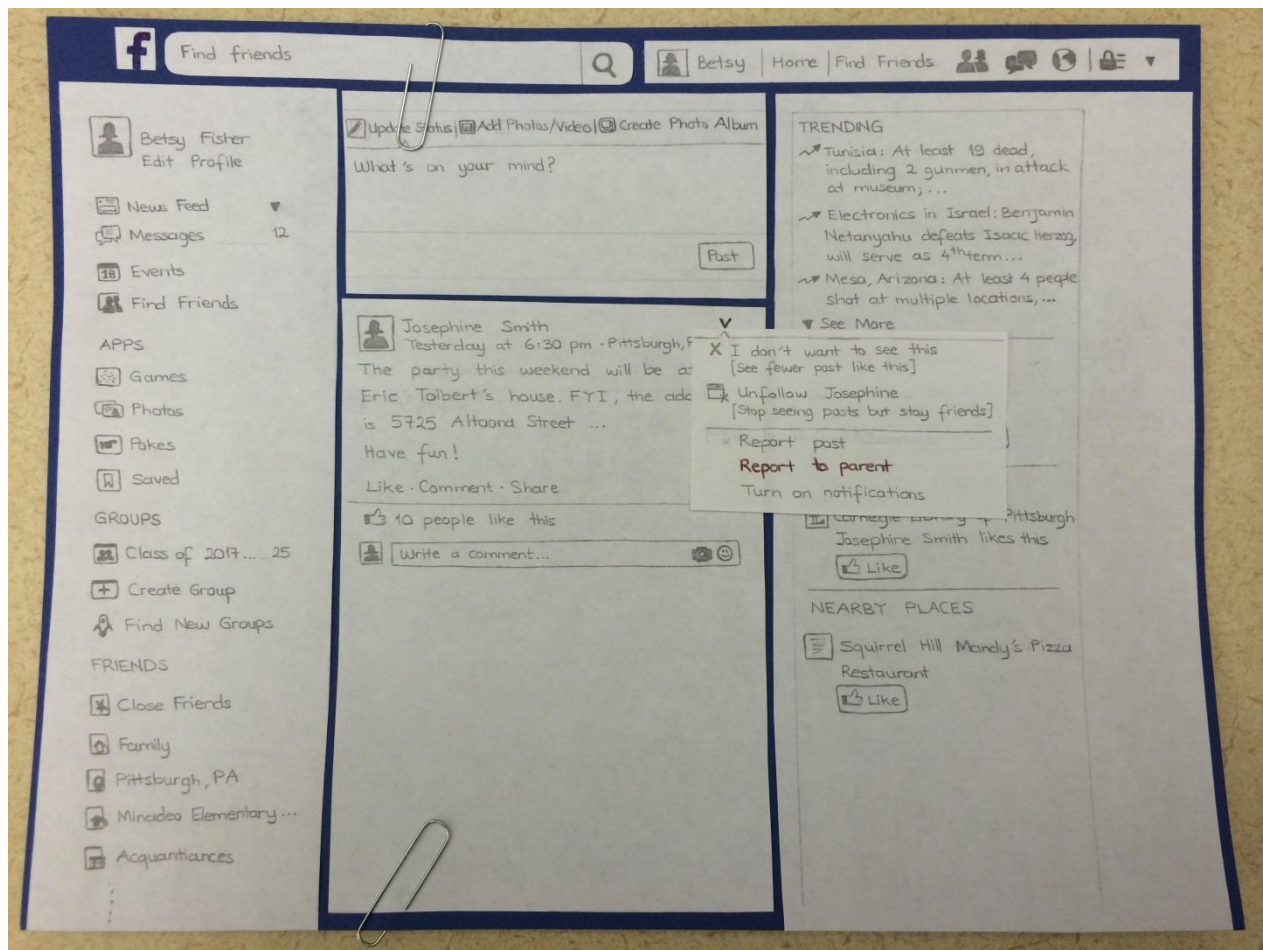 f
Find friends
Betsy | Home | Find Friends
Betsy Fisher
Edit Profile
News Feed
Messages 12
18 Events
Find Friends
APPS
Games
Photos
Pokes
Saved
GROUPS
Class of 2017... 25
Create Group
Find New Groups
FRIENDS
Close Friends
Family
Pittsburgh, PA
Minadeo Elementary...
Acquantiances
Update Status | Add Photos/Video | Create Photo Album
What's on your mind?
Post
Josephine Smith
Yesterday at 6:30 pm · Pittsburgh,
The party this weekend will be
Eric Tolbert's house. FYI, the
is 5725 Altoona Street ...
Have fun!
Like · Comment · Share
10 people like this
Write a comment...
X I don't want to see this
[See fewer post like this]
Unfollow Josephine
[Stop seeing posts but stay friends]
Report post
Report to parent
Turn on notifications
TRENDING
Tunisia: At least 19 dead,
including 2 gunmen, in attack
at museum; ...
Electronics in Israel: Benjamin
Netanyahu defeats Isaac Herzog,
will serve as 4th term...
Mesa, Arizona: At least 4 people
shot at multiple locations, ...
See More
Carnegie Library of Pittsburgh
Josephine Smith likes this
Like
NEARBY PLACES
Squirrel Hill Mandy's Pizza
Restaurant
Like